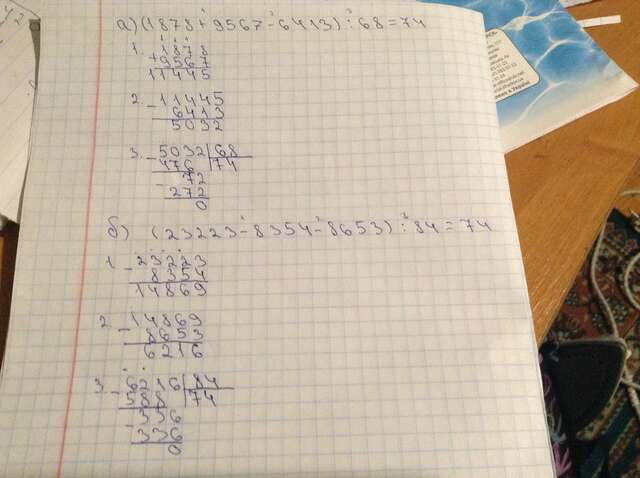 а) (1878+9567-6413):68=74
1. 1878
+9567
11445
2. -11445
6413
5032
3. -5032|68
476 74
-72
272
0
б) (23223-8354-8653):84=74
1 -23223
8354
14869
2 -14869
8653
6216
3 -6216|84
588 74
-336
336
0